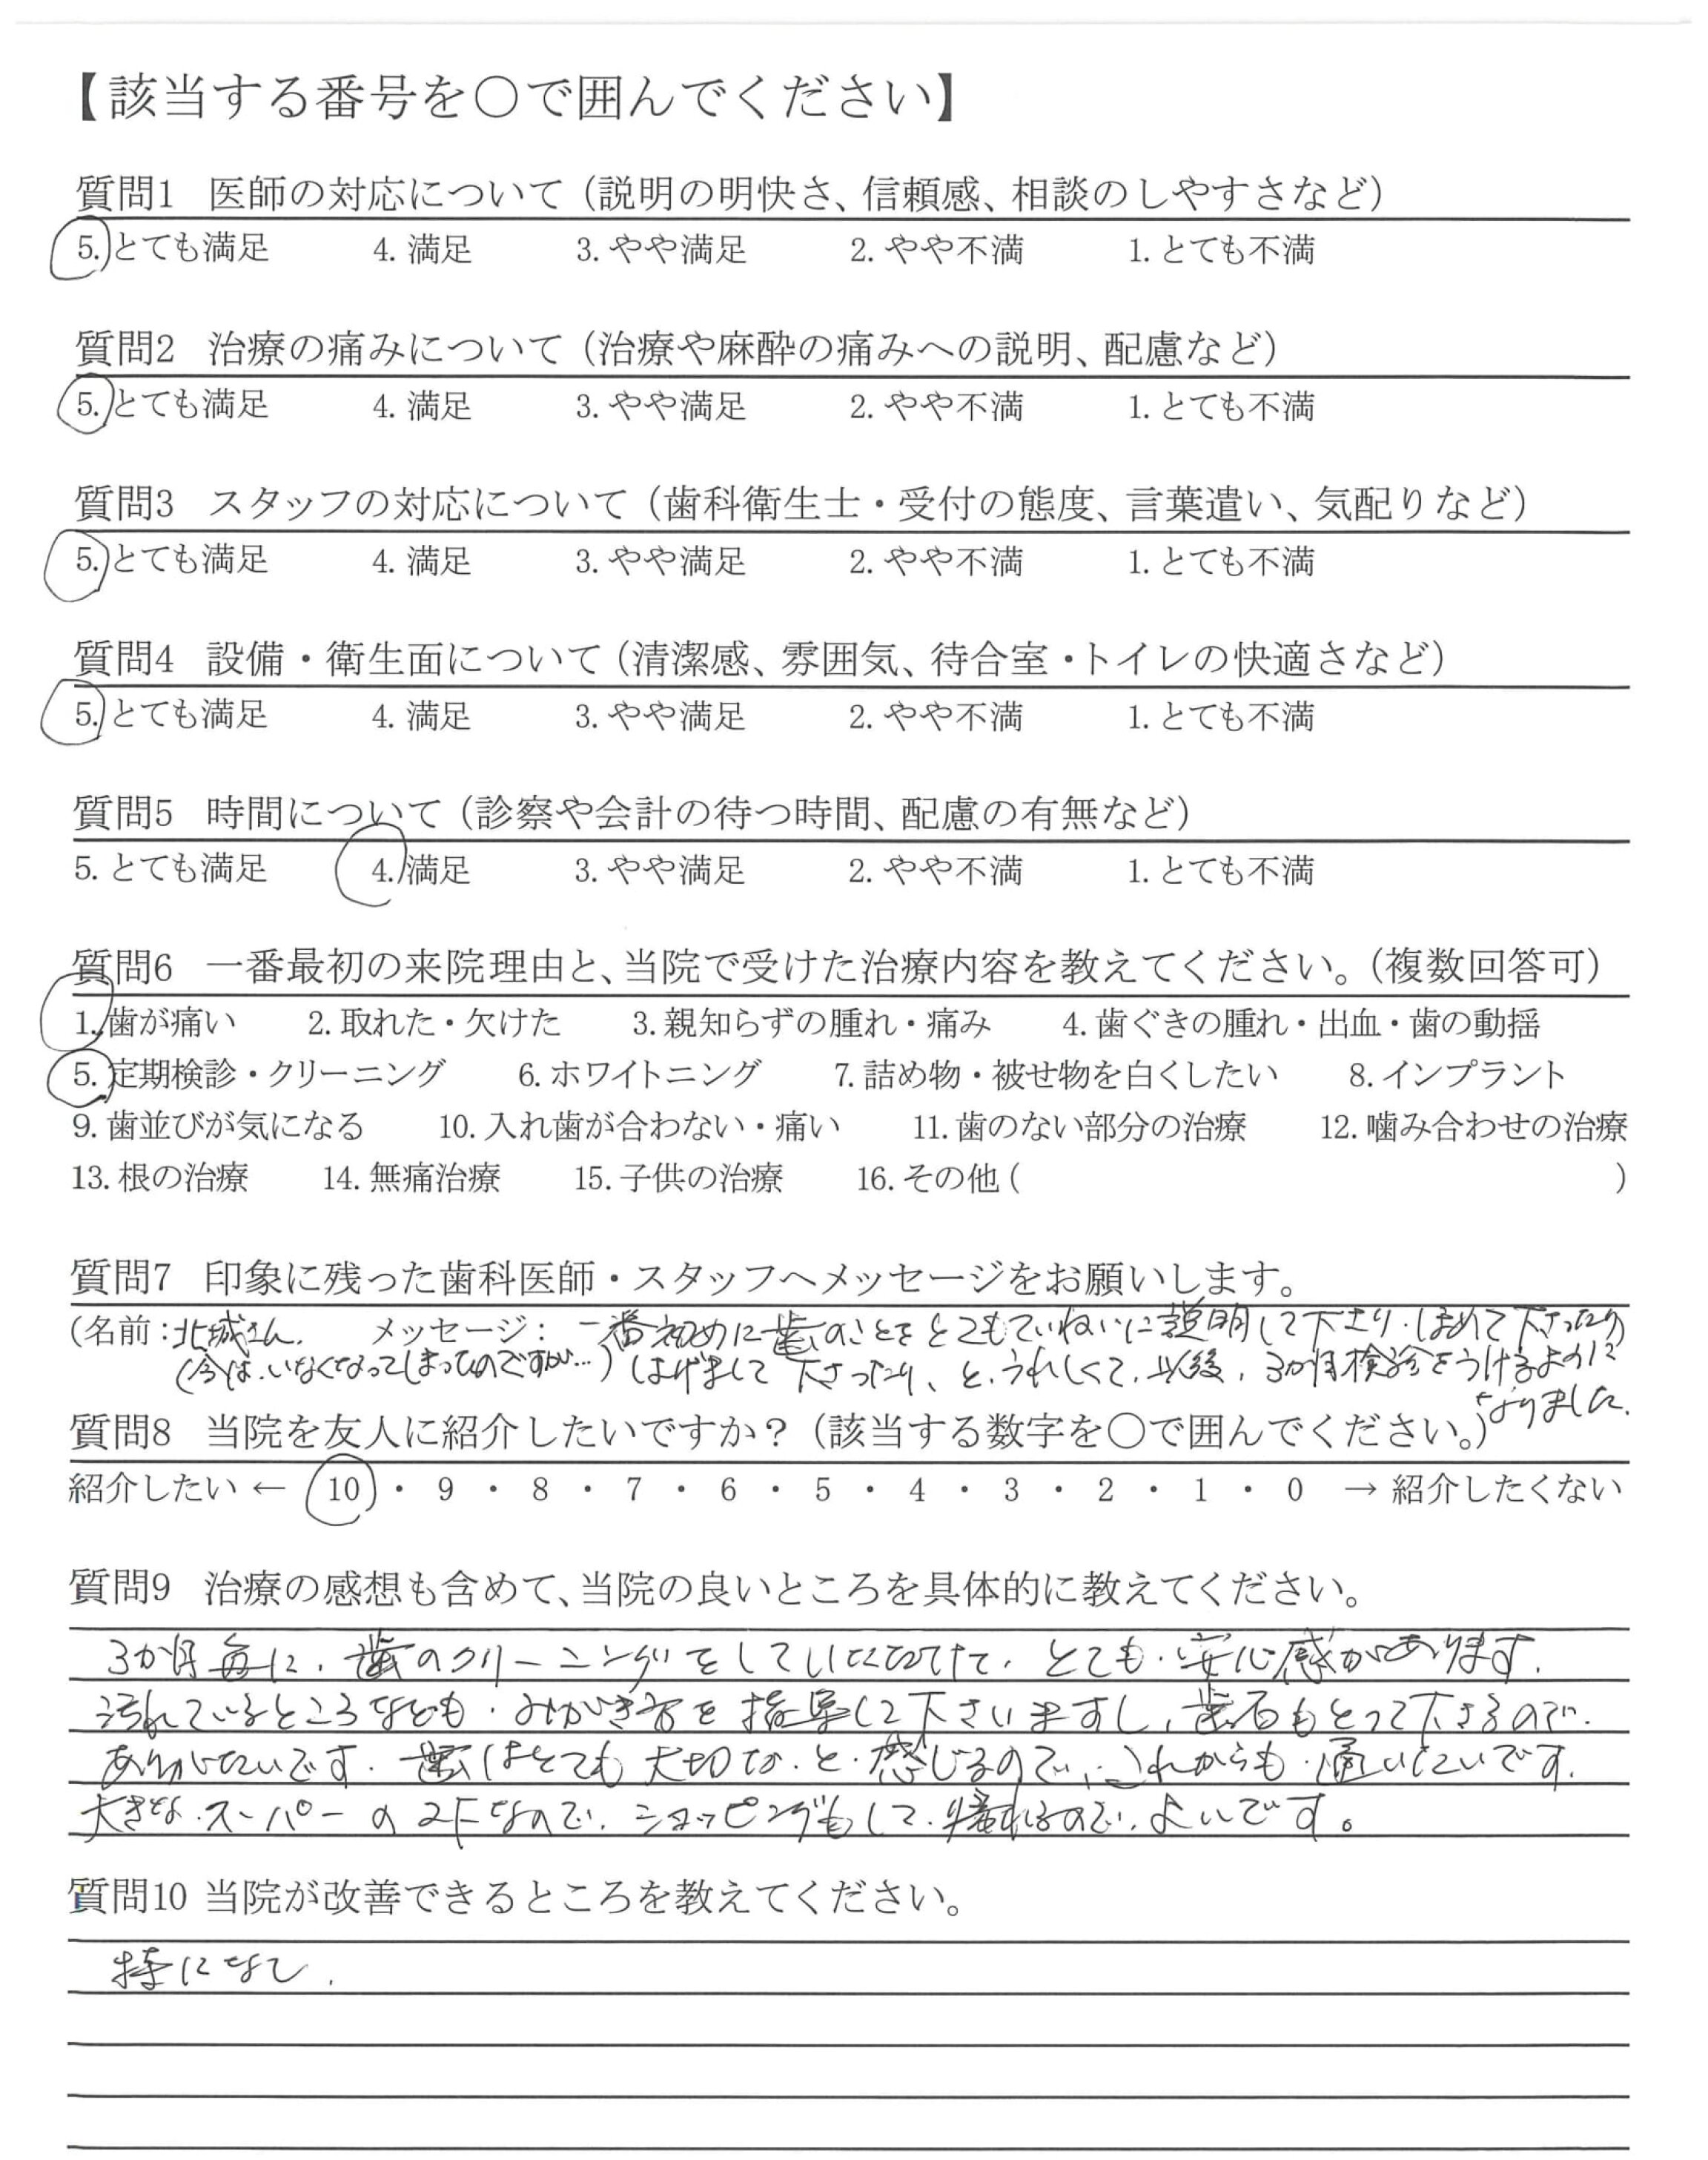 【該当する番号を○で囲んでください】
質問1 医師の対応について（説明の明快さ、信頼感、相談のしやすさなど）
5. とても満足 4. 満足 3. やや満足 2. やや不満 1. とても不満
質問2 治療の痛みについて（治療や麻酔の痛みへの説明、配慮など）
5. とても満足 4. 満足 3. やや満足 2. やや不満 1. とても不満
質問3 スタッフの対応について（歯科衛生士・受付の態度、言葉遣い、気配りなど）
5. とても満足 4. 満足 3. やや満足 2. やや不満 1. とても不満
質問4 設備・衛生面について（清潔感、雰囲気、待合室・トイレの快適さなど）
5. とても満足 4. 満足 3. やや満足 2. やや不満 1. とても不満
質問5 時間について（診察や会計の待つ時間、配慮の有無など）
5. とても満足 4. 満足 3. やや満足 2. やや不満 1. とても不満
質問6 一番最初の来院理由と、当院で受けた治療内容を教えてください。（複数回答可）
1. 歯が痛い 2. 取れた・欠けた 3. 親知らずの腫れ・痛み 4. 歯ぐきの腫れ・出血・歯の動揺
5. 定期検診・クリーニング 6. ホワイトニング 7. 詰め物・被せ物を白くしたい 8. インプラント
9. 歯並びが気になる 10. 入れ歯が合わない・痛い 11. 歯のない部分の治療 12. 噛み合わせの治療
13. 根の治療 14. 無痛治療 15. 子供の治療 16. その他（ ）
質問7 印象に残った歯科医師・スタッフへメッセージをお願いします。
（名前：北城さん. メッセージ： 一番初めに歯のことをとてもていねいに説明して下さり、ほめて下さったり
（今は、いなくなってしまったのですが…） はげまして下さったり、と、うれしくて、以後、3か月検診をうけるように
なりました.
質問8 当院を友人に紹介したいですか？（該当する数字を○で囲んでください。）
紹介したい ← 10 ・ 9 ・ 8 ・ 7 ・ 6 ・ 5 ・ 4 ・ 3 ・ 2 ・ 1 ・ 0 → 紹介したくない
質問9 治療の感想も含めて、当院の良いところを具体的に教えてください。
3か月毎に、歯のクリーニングをしていただけて、とても、安心感があります.
汚れているところなども、みがき方を指導して下さいますし、歯石もとって下さるので、
ありがたいです. 歯はとても大切な、と、感じるので、これからも、通いたいです.
大きな、スーパーの2Fなので、ショッピングもして、帰れるので、よいです。
質問10 当院が改善できるところを教えてください。
特になし.